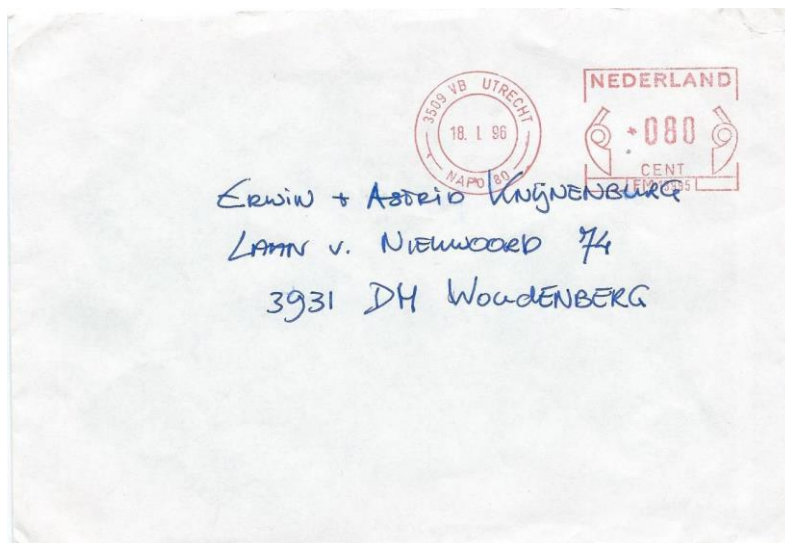 3509 VB UTRECHT
18. I 96
NAPO 80
NEDERLAND
*080
CENT
ERWIN + ASTRID KNIJNENBURG
LAAN v. NIEUWOORD 74
3931 DH WOUDENBERG